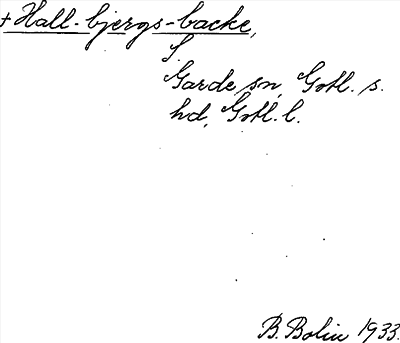 + Hall-bjergs-backe,
S.
Garde sn, Gotl. s.
hd, Gotl. l.
B. Bolin 1933.